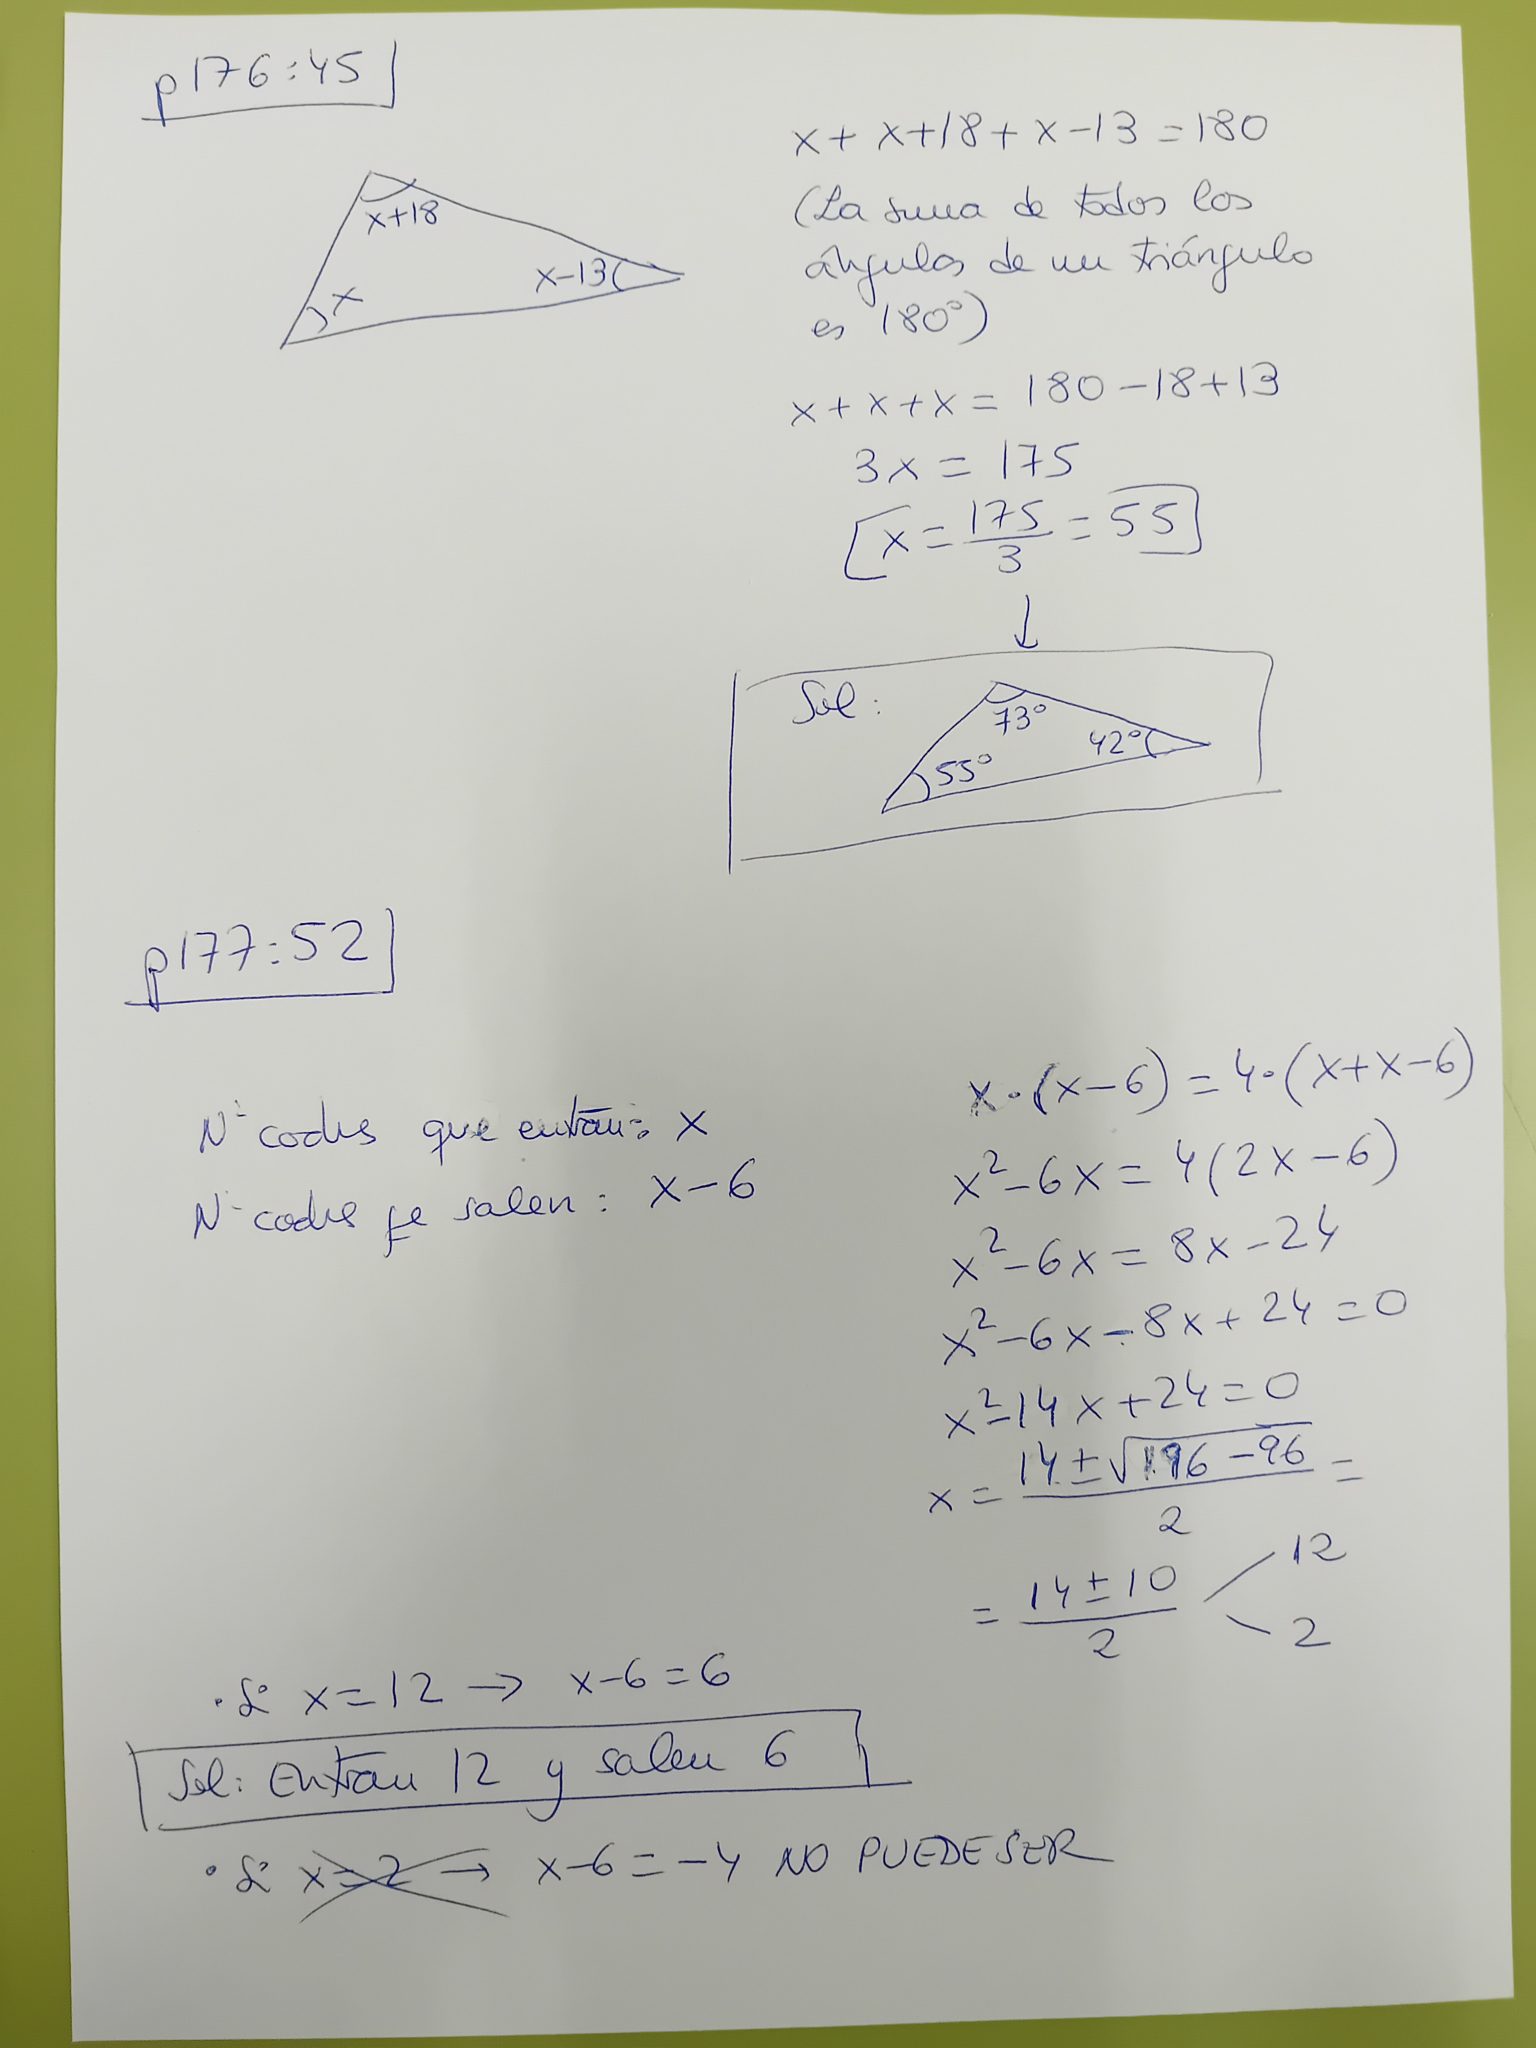 p176:45
x+18
x-13
x
x+x+18+x-13=180
(La suma de todos los
ángulos de un triángulo
es 180º)
x+x+x=180-18+13
3x=175
x=175/3=55
↓
Sol:
73º
42º
55º
p177:52
Nº coches que entran: x
Nº coches qe salen: x-6
x·(x-6)=4·(x+x-6)
x²-6x=4(2x-6)
x²-6x=8x-24
x²-6x-8x+24=0
x²-14x+24=0
x=(14±√196-96)/2=
=(14±10)/2
12
2
·Si x=12→ x-6=6
Sol: Entran 12 y salen 6
·Si x=2→ x-6=-4 NO PUEDE SER